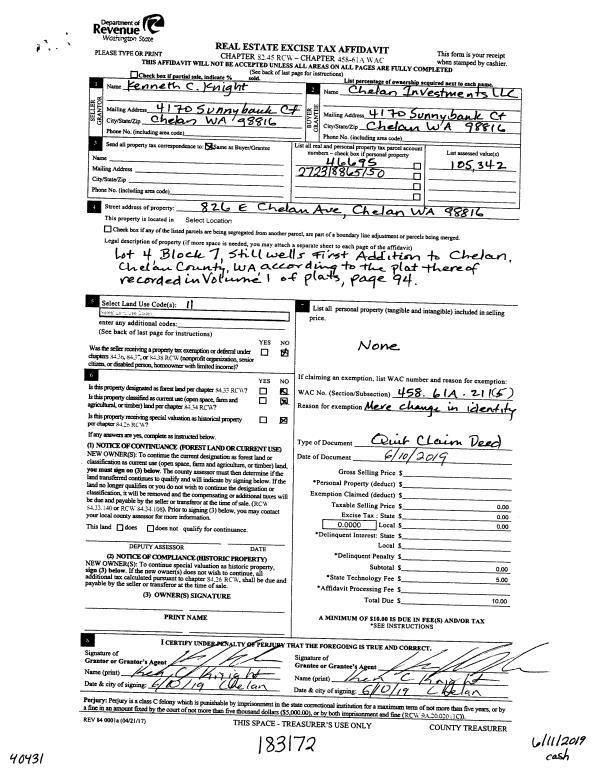 Department of
Revenue
Washington State
REAL ESTATE EXCISE TAX AFFIDAVIT
CHAPTER 82.45 RCW – CHAPTER 458-61A WAC
This form is your receipt
when stamped by cashier.
PLEASE TYPE OR PRINT
THIS AFFIDAVIT WILL NOT BE ACCEPTED UNLESS ALL AREAS ON ALL PAGES ARE FULLY COMPLETED
(See back of last page for instructions)
Check box if partial sale, indicate % sold.
List percentage of ownership acquired next to each name.
1 Name Kenneth C. Knight
2 Name Chelan Investments LLC
SELLER GRANTOR
BUYER GRANTEE
Mailing Address 4170 Sunnybank Ct
City/State/Zip Chelan WA 98816
Phone No. (including area code)
Mailing Address 4170 Sunnybank Ct
City/State/Zip Chelan WA 98816
Phone No. (including area code)
3 Send all property tax correspondence to: Same as Buyer/Grantee
Name
Mailing Address
City/State/Zip
Phone No. (including area code)
List all real and personal property tax parcel account
numbers – check box if personal property
46695
272318865150
List assessed value(s)
105,342
4 Street address of property: 826 E Chelan Ave, Chelan WA 98816
This property is located in Select Location
Check box if any of the listed parcels are being segregated from another parcel, are part of a boundary line adjustment or parcels being merged.
Legal description of property (if more space is needed, you may attach a separate sheet to each page of the affidavit)
Lot 4 Block 7, Stillwells First Addition to Chelan,
Chelan County, WA according to the plat thereof
recorded in Volume 1 of plats, page 94.
5 Select Land Use Code(s): 11
enter any additional codes:
(See back of last page for instructions)
YES NO
Was the seller receiving a property tax exemption or deferral under
chapters 84.36, 84.37, or 84.38 RCW (nonprofit organization, senior
citizen, or disabled person, homeowner with limited income)?
6
YES NO
Is this property designated as forest land per chapter 84.33 RCW?
Is this property classified as current use (open space, farm and
agricultural, or timber) land per chapter 84.34 RCW?
Is this property receiving special valuation as historical property
per chapter 84.26 RCW?
If any answers are yes, complete as instructed below.
(1) NOTICE OF CONTINUANCE (FOREST LAND OR CURRENT USE)
NEW OWNER(S): To continue the current designation as forest land or
classification as current use (open space, farm and agriculture, or timber) land,
you must sign on (3) below. The county assessor must then determine if the
land transferred continues to qualify and will indicate by signing below. If the
land no longer qualifies or you do not wish to continue the designation or
classification, it will be removed and the compensating or additional taxes will
be due and payable by the seller or transferor at the time of sale. (RCW
84.33.140 or RCW 84.34.108). Prior to signing (3) below, you may contact
your local county assessor for more information.
This land does does not qualify for continuance.
DEPUTY ASSESSOR DATE
(2) NOTICE OF COMPLIANCE (HISTORIC PROPERTY)
NEW OWNER(S): To continue special valuation as historic property,
sign (3) below. If the new owner(s) does not wish to continue, all
additional tax calculated pursuant to chapter 84.26 RCW, shall be due and
payable by the seller or transferor at the time of sale.
(3) OWNER(S) SIGNATURE
PRINT NAME
7 List all personal property (tangible and intangible) included in selling
price.
None
If claiming an exemption, list WAC number and reason for exemption:
WAC No. (Section/Subsection) 458.61A.211(5)
Reason for exemption Mere change in identity
Type of Document Quit Claim Deed
Date of Document 6/10/2019
Gross Selling Price $
*Personal Property (deduct) $
Exemption Claimed (deduct) $
Taxable Selling Price $ 0.00
Excise Tax : State $ 0.00
0.0000 Local $ 0.00
*Delinquent Interest: State $
Local $
*Delinquent Penalty $
Subtotal $ 0.00
*State Technology Fee $ 5.00
*Affidavit Processing Fee $
Total Due $ 10.00
A MINIMUM OF $10.00 IS DUE IN FEE(S) AND/OR TAX
*SEE INSTRUCTIONS
8 I CERTIFY UNDER PENALTY OF PERJURY THAT THE FOREGOING IS TRUE AND CORRECT.
Signature of
Grantor or Grantor's Agent
Name (print) Ken C Knight
Date & city of signing: 6/10/19 Chelan
Signature of
Grantee or Grantee's Agent
Name (print) Ken C Knight
Date & city of signing: 6/10/19 Chelan
Perjury: Perjury is a class C felony which is punishable by imprisonment in the state correctional institution for a maximum term of not more than five years, or by
a fine in an amount fixed by the court of not more than five thousand dollars ($5,000.00), or by both imprisonment and fine (RCW 9A.20.020 (1C)).
REV 84 0001a (04/21/17)
THIS SPACE - TREASURER'S USE ONLY
COUNTY TREASURER
183172
40431
6/11/2019
cash